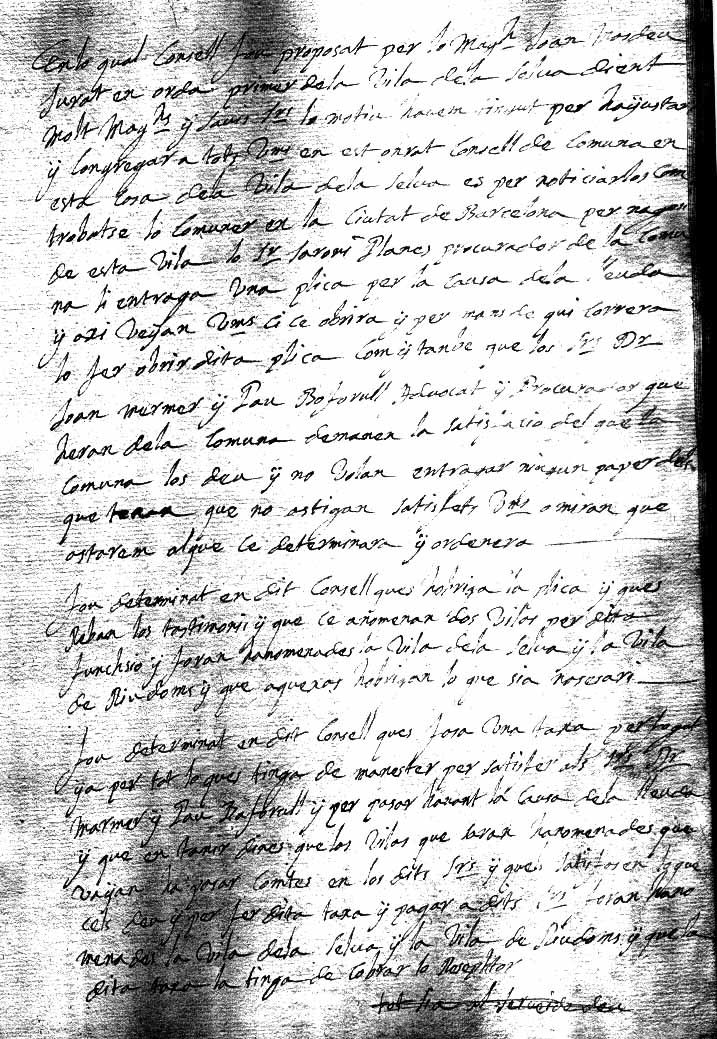 En lo qual Consell fou proposat per lo Magh Joan Mosdeu
Jurat en orda primer dela Vila dela Selva dient
Molt Maghs ÿ Savis Srs lo motiu havem tingut per haÿustar
ÿ Congregar a tots Vms en est onrat Consell de Comuna en
esta Cosa dela Vila dela Selva es per noticiarlos Com
trobatse lo Comuner en la Ciutat de Barcelona per nagosis
de esta Vila lo Sr Jaroni Planes procurador de la Comu
na li entraga Una plica per la Causa dela lleuda
ÿ axi Vejan Vms Ci ce obrira ÿ per mans de qui Correra
lo fer obrir dita plica Com ÿ tambe que los Srs Dr
Joan Marmer ÿ Pau Boforull Advocat ÿ Procurador que
heran dela Comuna demanen la satisfacio del que la
Comuna los deu ÿ no Volan entragar ningun paper dels
que tenan que no astigan satisfets Vms o miran que
astarem alque Ce determinara ÿ ordenera
Fou determinat en dit Consell ques hobriga la plica ÿ ques
Reban los tastimonis ÿ que Ce añomenan dos Vilas per dita
funchsio ÿ foran hanomenades la Vila dela Selva ÿ la Vila
de Riudoms ÿ que aquexas hobrigan lo que sia nasesari
Fou determinat en dit Consell ques fasa Una taxa per
ÿa per tot lo ques tinga de manester per satisfer als Srs Dr
Marmer ÿ Pau Boforull ÿ per pasar havant la Causa dela lleuda
ÿ que en tanir dines que los Vilas que saran hanomenades que
Vajan ha pasar Comtes en los dits Srs ÿ ques satisfasen lo que
cels deu ÿ per fer dita taxa ÿ pagar a dits Srs foran hano
menades la Vila dela Selva ÿ la Vila de Riudoms ÿ que la
dita taxa la tinga de Cobrar lo Raseptor
tot sia al serveide deu